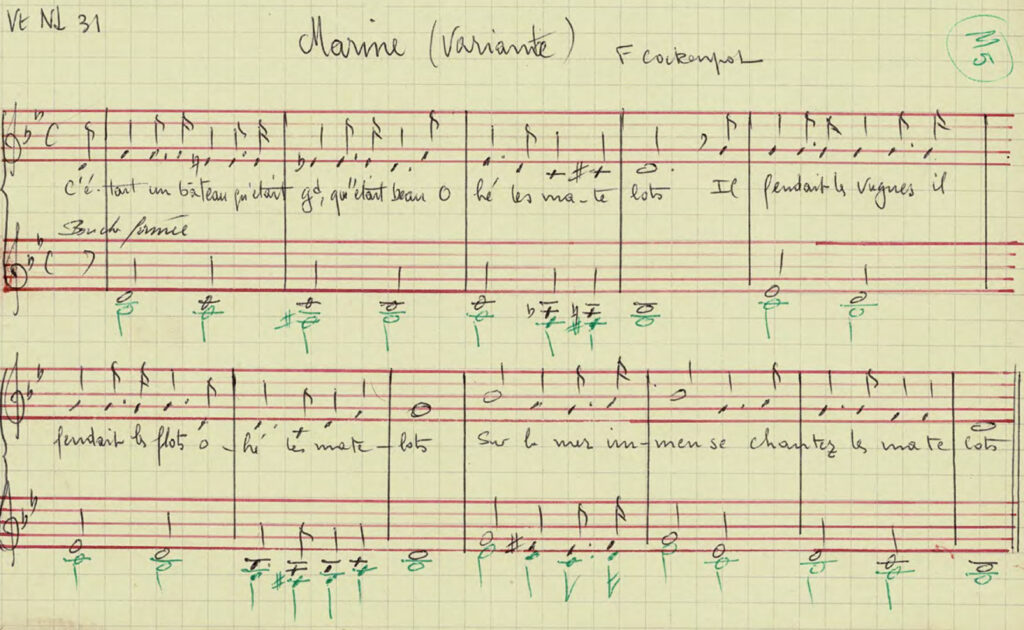 Vt Nd 31
Marine (Variante)
F Cockenpot
M5
C'é-tait un bâteau qu'était gd, qu'était beau O hé les ma-te lots Il fendait les vagues il
Bouche fermée
fendait les flots ô-hé les mate-lots Sur la mer im-mense chantez les mate lots